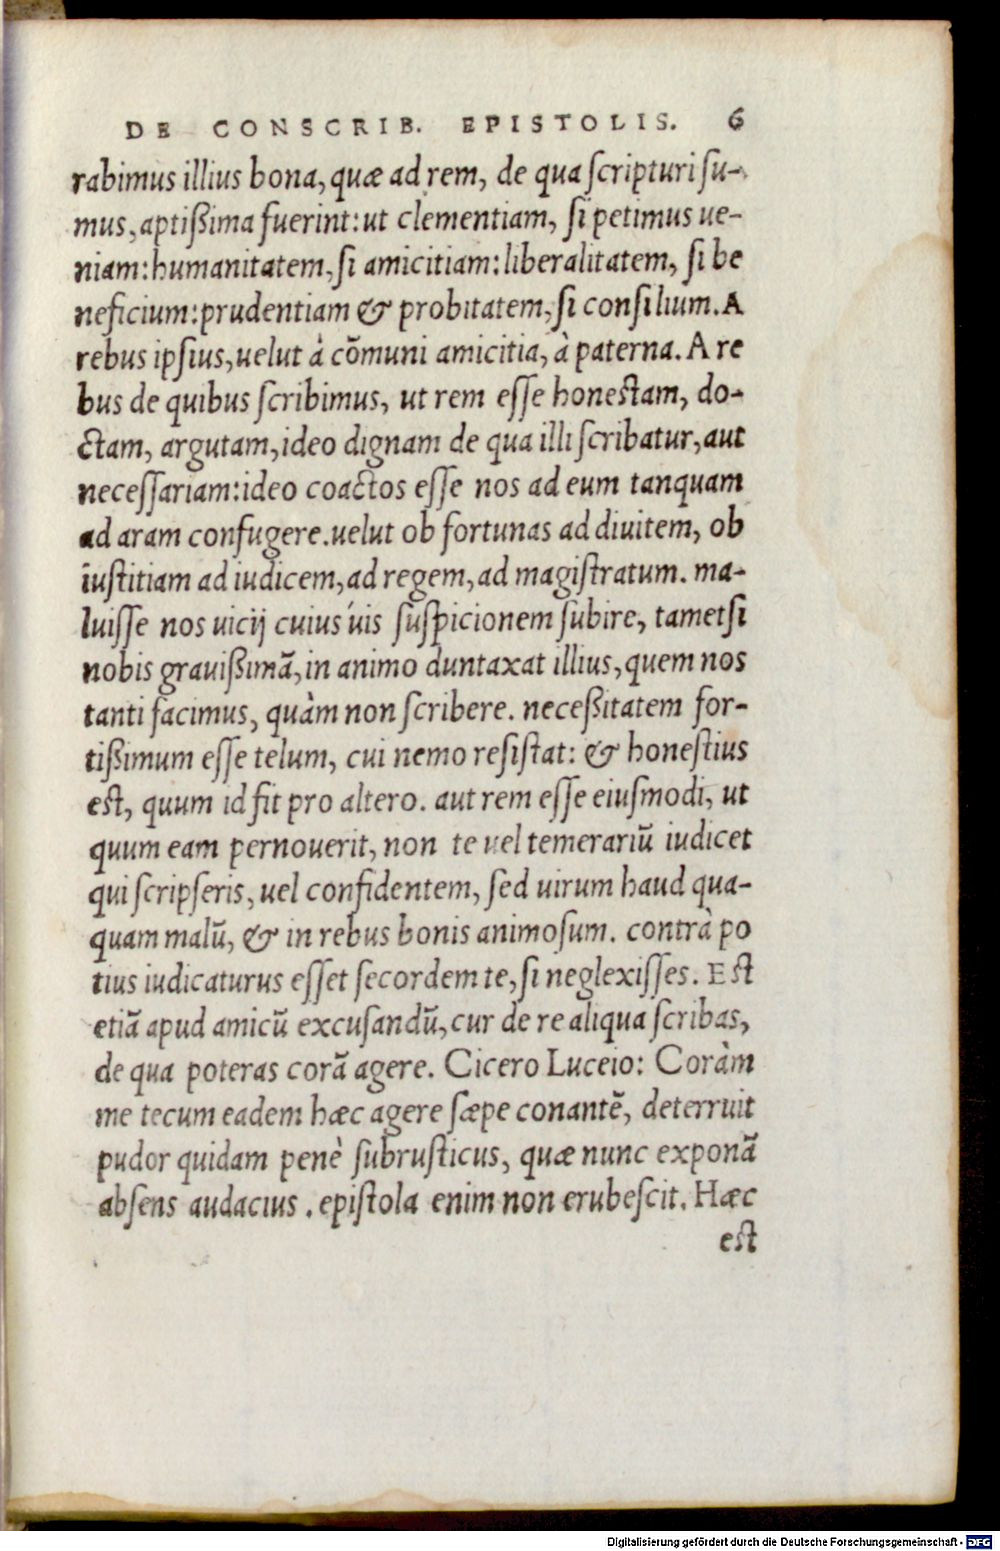 DE CONSCRIB. EPISTOLIS. 6
rabimus illius bona, quæ ad rem, de qua ſcripturi ſu-
mus, aptißima fuerint: ut clementiam, ſi petimus ue-
niam: humanitatem, ſi amicitiam: liberalitatem, ſi be
neficium: prudentiam & probitatem, ſi conſilium. A
rebus ipſius, uelut à cõmuni amicitia, à paterna. A re
bus de quibus ſcribimus, ut rem eſſe honeſtam, do-
ctam, argutam, ideo dignam de qua illi ſcribatur, aut
neceſſariam: ideo coactos eſſe nos ad eum tanquam
ad aram confugere. uelut ob fortunas ad diuitem, ob
iuſtitiam ad iudicem, ad regem, ad magiſtratum. ma-
luiſſe nos uicij cuius úis ſuſpicionem ſubire, tametſi
nobis grauißimã, in animo duntaxat illius, quem nos
tanti facimus, quàm non ſcribere. neceßitatem for-
tißimum eſſe telum, cui nemo reſiſtat: & honeſtius
eſt, quum id fit pro altero. aut rem eſſe eiuſmodi, ut
quum eam pernouerit, non te uel temerariũ iudicet
qui ſcripſeris, uel confidentem, ſed uirum haud qua-
quam malũ, & in rebus bonis animoſum. contrà po
tius iudicaturus eſſet ſecordem te, ſi neglexiſſes. Eſt
etiã apud amicũ excuſandũ, cur de re aliqua ſcribas,
de qua poteras corã agere. Cicero Luceio: Coràm
me tecum eadem hæc agere ſæpe conantẽ, deterruit
pudor quidam penè ſubruſticus, quæ nunc exponã
abſens audacius. epiſtola enim non erubeſcit. Hæc
eſt
Digitalisierung gefördert durch die Deutsche Forschungsgemeinschaft - DFG